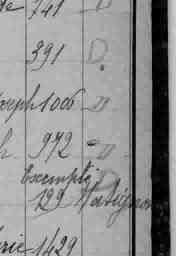 741
391 D.
oseph 1006 D
h 972 D
Exempté
129 Matignon
rie 1429